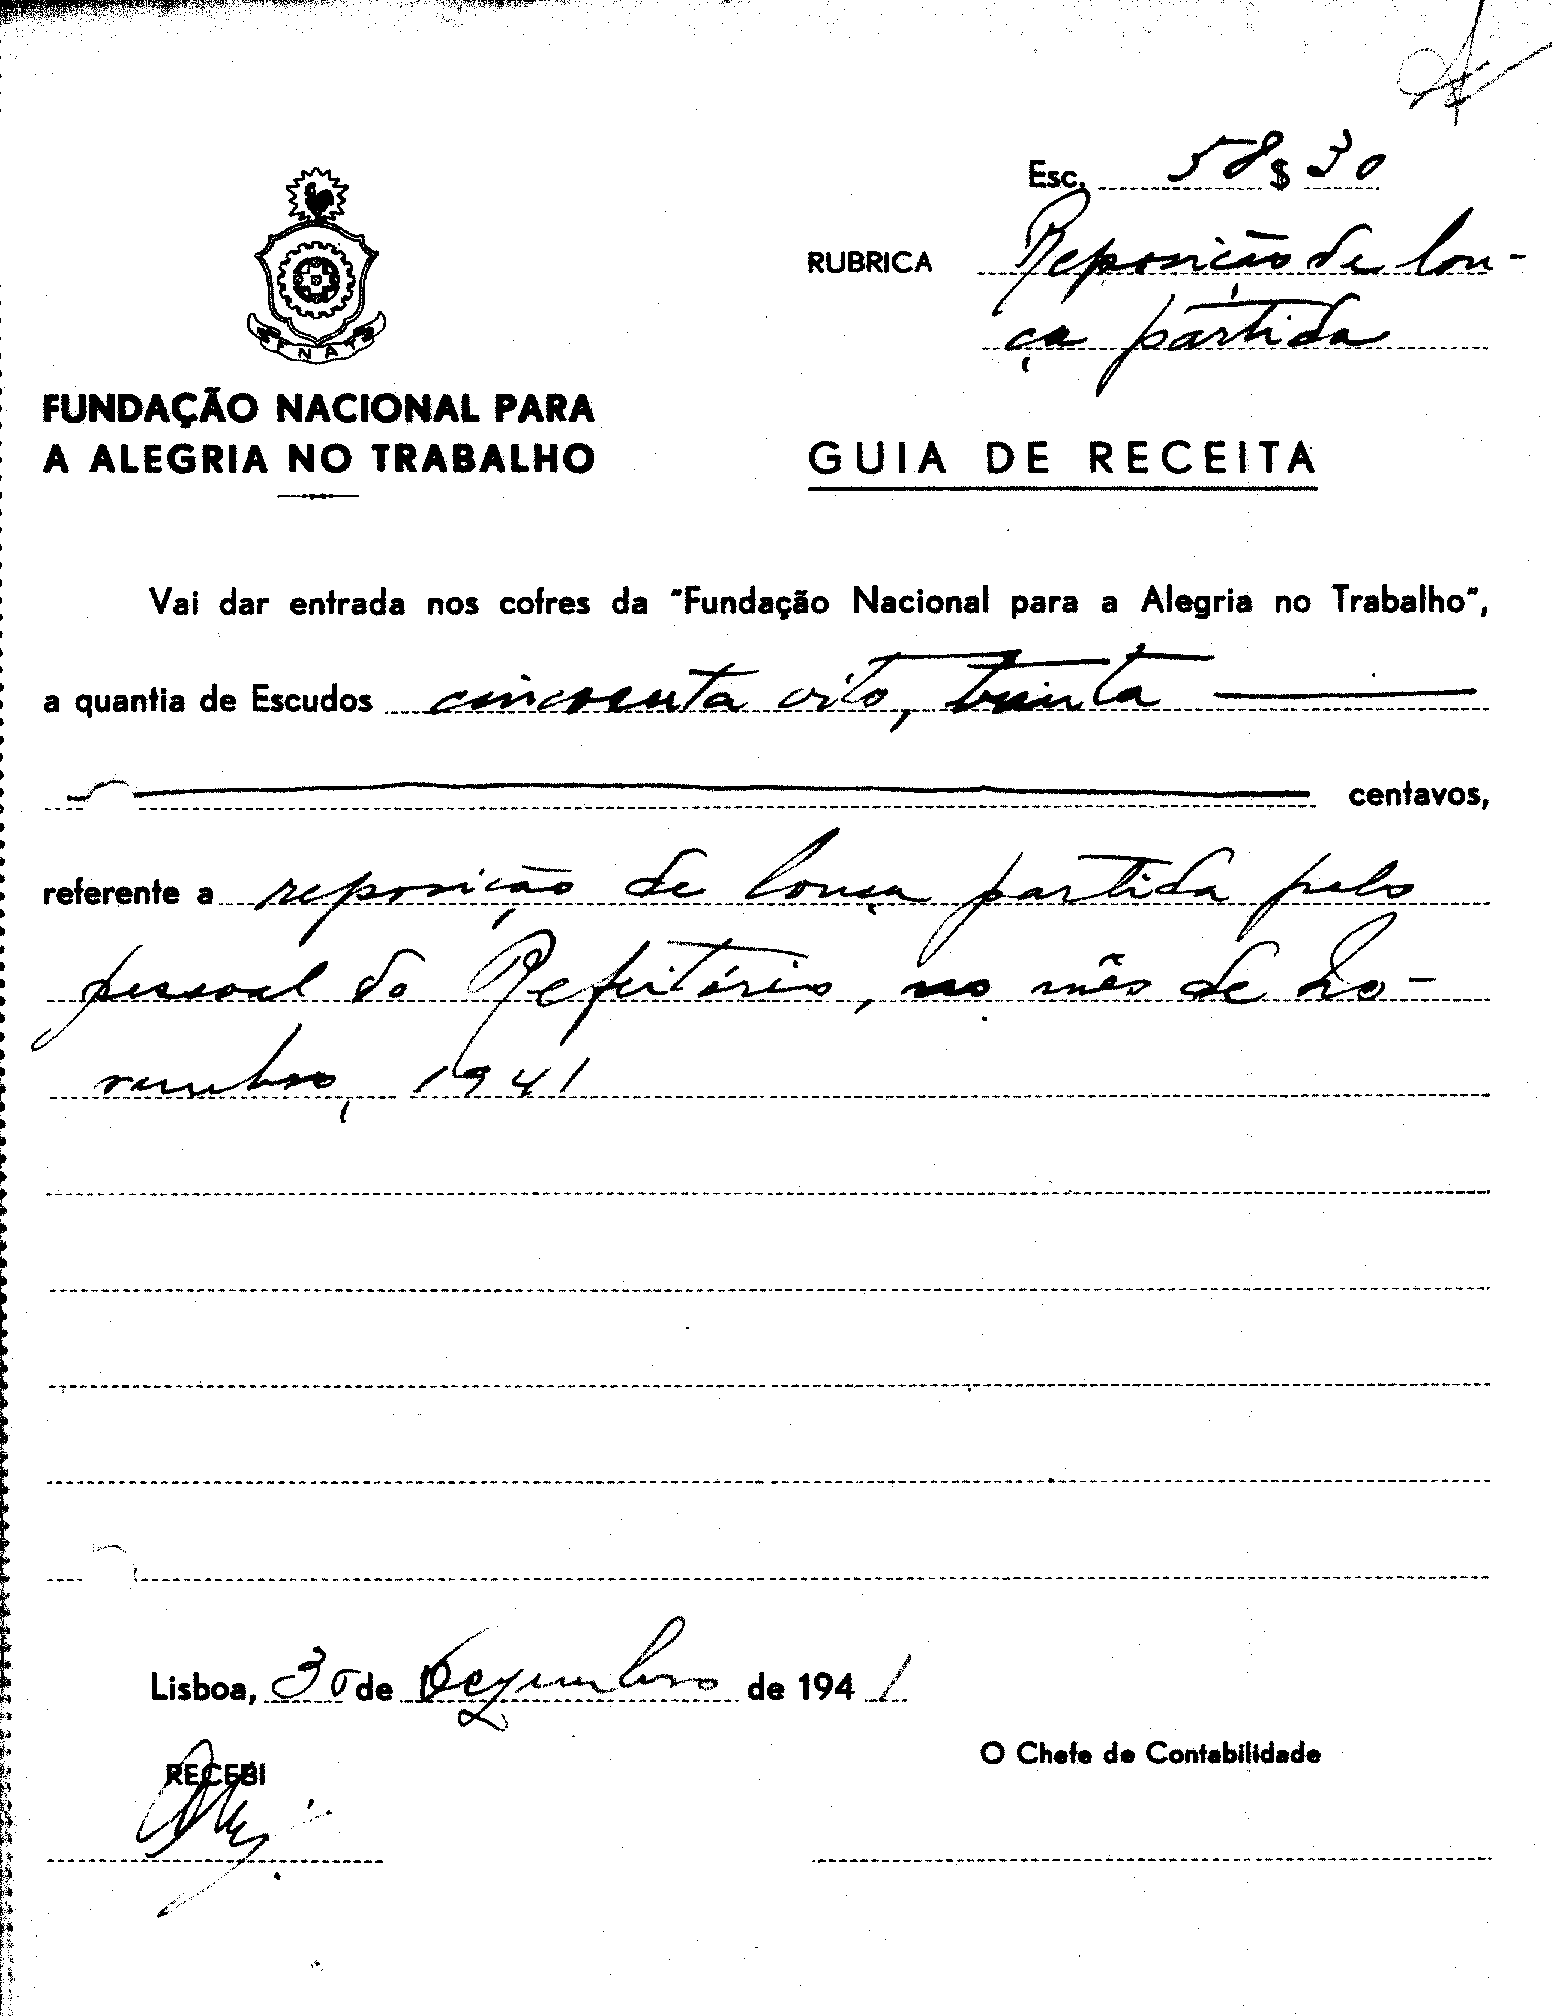 Esc. 58$30
RUBRICA Reposição de lou-
ça partida
FNAT
FUNDAÇÃO NACIONAL PARA
A ALEGRIA NO TRABALHO
GUIA DE RECEITA
Vai dar entrada nos cofres da "Fundação Nacional para a Alegria no Trabalho",
a quantia de Escudos cincoenta oito, trinta
centavos,
referente a reposição de louça partida pelo
pessoal do Refeitório, no mês de No-
vembro, 1941
Lisboa, 30 de Dezembro de 1941
RECEBI
O Chefe de Contabilidade